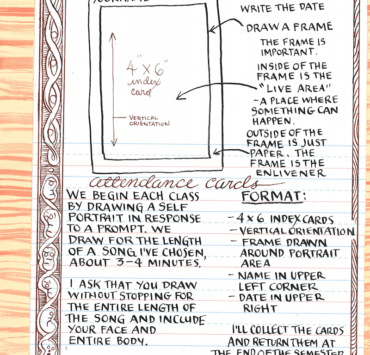 WRITE THE DATE
DRAW A FRAME
THE FRAME IS
IMPORTANT.
INSIDE OF THE
FRAME IS THE
"LIVE AREA"
- A PLACE WHERE
SOMETHING CAN
HAPPEN.
OUTSIDE OF THE
FRAME IS JUST
PAPER. THE
FRAME IS THE
ENLIVENER
4" x 6"
index
card
VERTICAL
ORIENTATION
attendance cards
WE BEGIN EACH CLASS
BY DRAWING A SELF
PORTRAIT IN RESPONSE
TO A PROMPT. WE
DRAW FOR THE LENGTH
OF A SONG I'VE CHOSEN,
ABOUT 3-4 MINUTES.
I ASK THAT YOU DRAW
WITHOUT STOPPING FOR
THE ENTIRE LENGTH OF
THE SONG AND INCLUDE
YOUR FACE AND
ENTIRE BODY.
FORMAT:
- 4 x 6 INDEX CARDS
- VERTICAL ORIENTATION
- FRAME DRAWN
AROUND PORTRAIT
AREA
- NAME IN UPPER
LEFT CORNER
- DATE IN UPPER
RIGHT
I'LL COLLECT THE CARDS
AND RETURN THEM AT
THE END OF THE SEMESTER